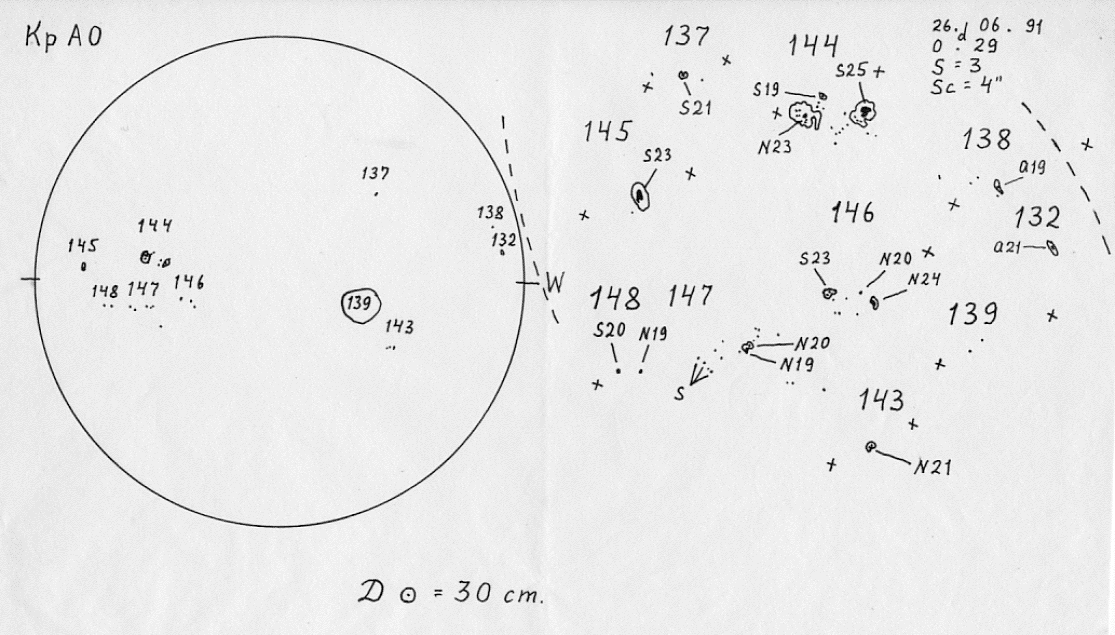 Кр АО
137
138
132
144
145
148 147 146
139
143
W
D ⊙ = 30 cm.
26.d 06. 91
0 . 29
S = 3
Sc = 4"
137
S21
144
S19
S25
N23
145
S23
138
a19
132
a21
146
S23
N20
N24
139
148
S20 N19
147
N20
N19
S
143
N21